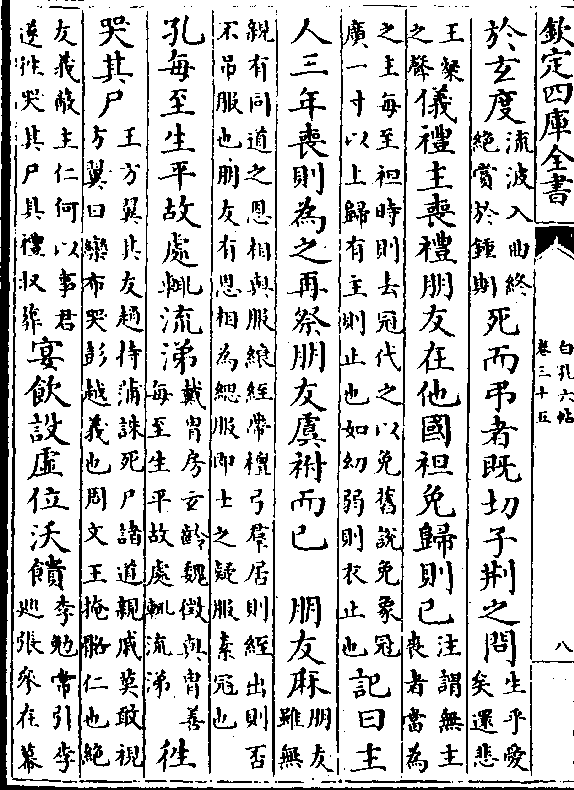 欽定四庫全書
白孔六帖
卷三十五
八
於玄度
流波入曲終
絶賞於鍾期
死而弔者既切子荆之問
生乎愛
矣還悲
王粲
之聲
儀禮主喪禮朋友在他國袒免歸則已
注謂無主
喪者當為
之主每至袒時則去冠代之以免舊說免象冠
廣一寸以上歸有主則止也如幼弱則衣止也
記曰主
人三年喪則為之再祭朋友虞祔而已　朋友麻
朋友
雖無
親有同道之恩相與服緦絰帶檀弓羣居則絰出則否
不弔服也朋友有恩相為緦服即士之疑服素冠也
孔每至生平故處輒流涕
戴胄房玄齡魏徵與胄善
每至生平故處輒流涕
徃
哭其尸
王方翼其友趙持滿誅死尸諸道親戚莫敢視
方翼曰欒布哭彭越義也周文王掩骼仁也絶
友義敵主仁何以事君
遂徃哭其尸具禮収葬
宴飲設虛位沃饋
李勉常引李
廵張參在幕